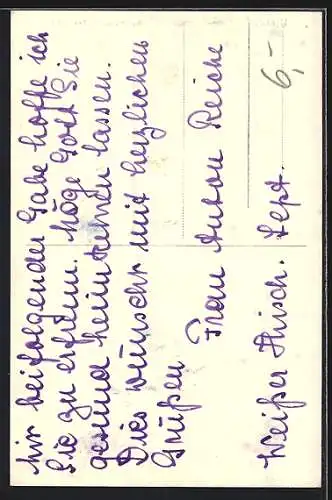 Mit beifolgender Gabe hoffe ich
Sie zu erfreuen. Möge Gott Sie
gesund heimkehren lassen.
Dies wünscht mit herzlichen
Grüßen
Frau Anton Reiche
Weißer Hirsch. Sept.
6,-